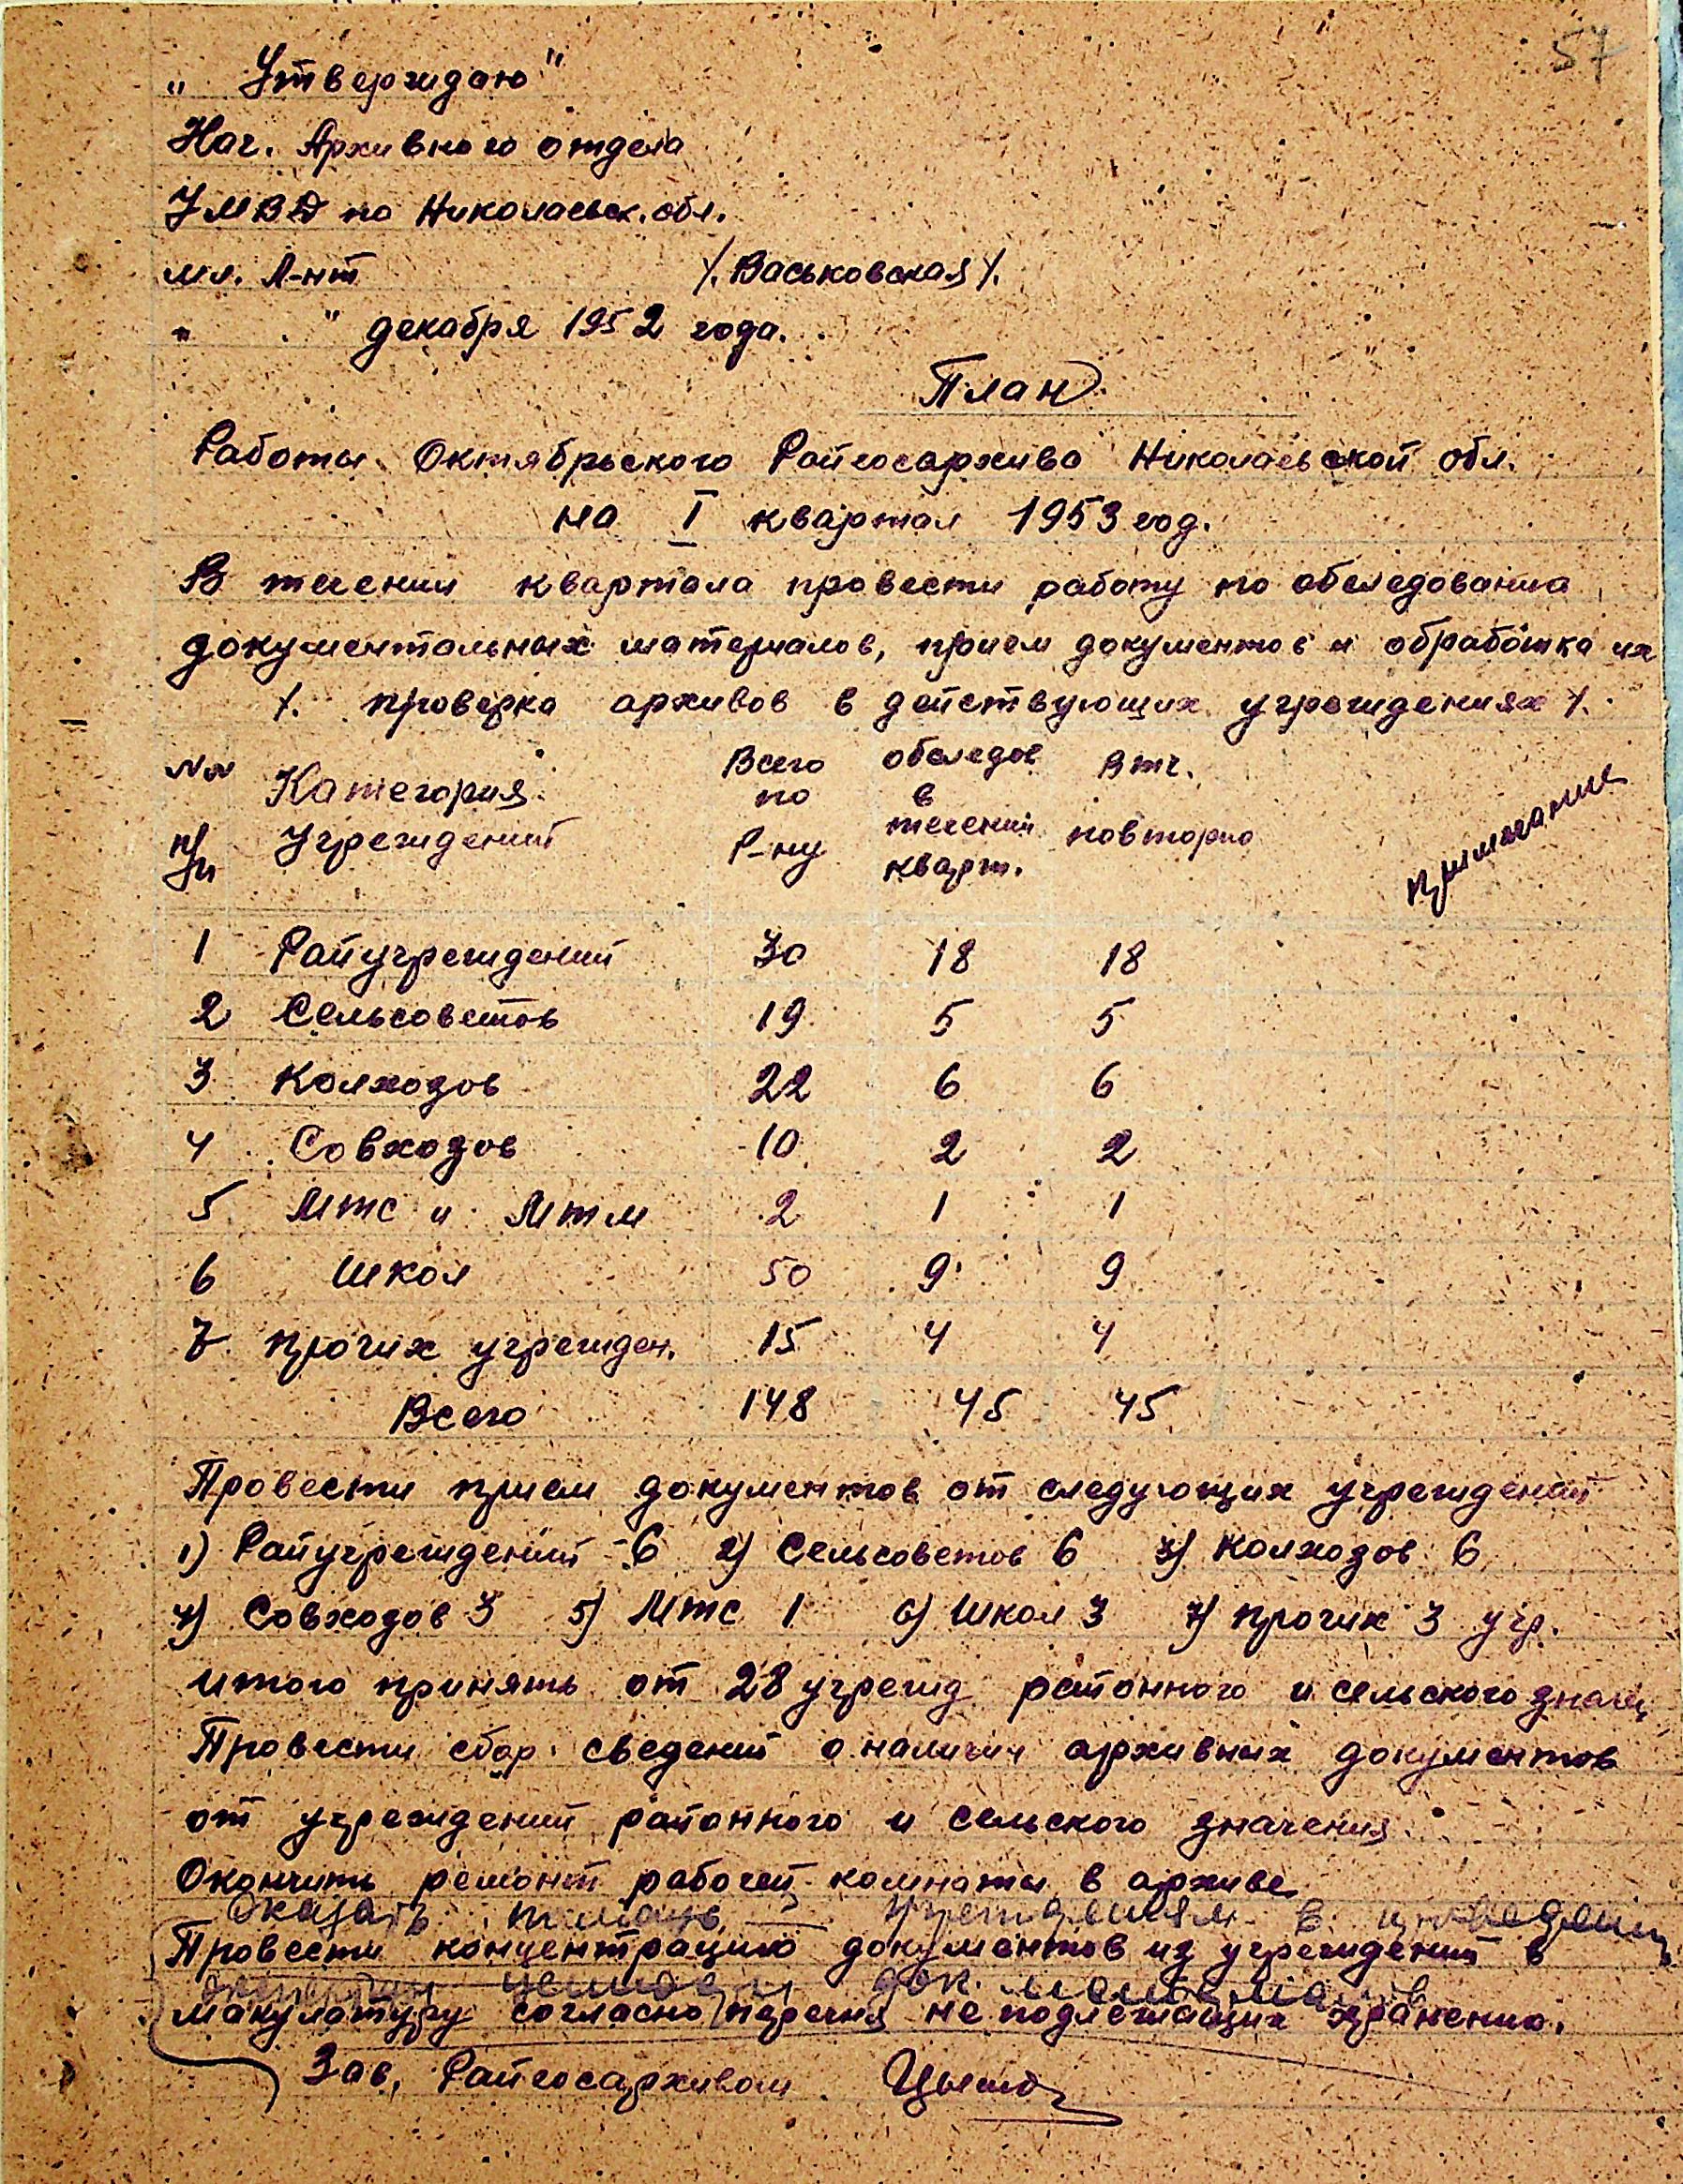 57
„ Утверждаю"
Нач. Архивного отдела
УМВД по Николаевск. обл.
мл. л-нт /. Васьковская /.
„ " декабря 1952 года.
План
Работы Октябрьского Райгосархива Николаевской обл.
на I квартал 1953 год.
В течении квартала провести работу по обследованию
документальных материалов, прием документов и обработка их
/. проверка архивов в действующих учреждениях /.
№№ п/п Категория Учреждений Всего по Р-ну обследов в течении кварт. В т.ч. повторно примечание
1 Райучреждений 30 18 18
2 Сельсоветов 19 5 5
3 Колхозов 22 6 6
4 Совхозов 10 2 2
5 МТС и МТМ 2 1 1
6 Школ 50 9 9
7 прочих учрежден. 15 4 4
Всего 148 45 45
Провести прием документов от следующих учреждений
1) Райучреждений - 6 2) Сельсоветов 6 3) Колхозов 6
4) Совхозов 3 5) МТС 1 6) Школ 3 7) прочих 3 учр.
итого принять от 28 учрежд районного и сельского знач
Провести сбор сведений о наличии архивных документов
от учреждений районного и сельского значения.
Окончить ремонт рабочей комнаты в архиве
Оказать помощь учреждениям в проведении
Провести концентрацию документов из учреждений в
экспертизы ценности док. материалов
макулатуру согласно перечня не подлежащих хранению.
Зав. Райгосархивом